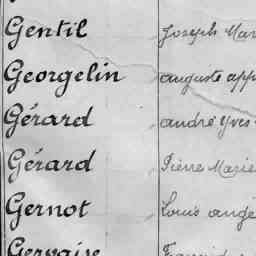 Gentil Joseph Mar
Georgelin auguste app
Gérard andré Yves
Gérard Pierre Marie
Gernot Louis ange
Gervaise